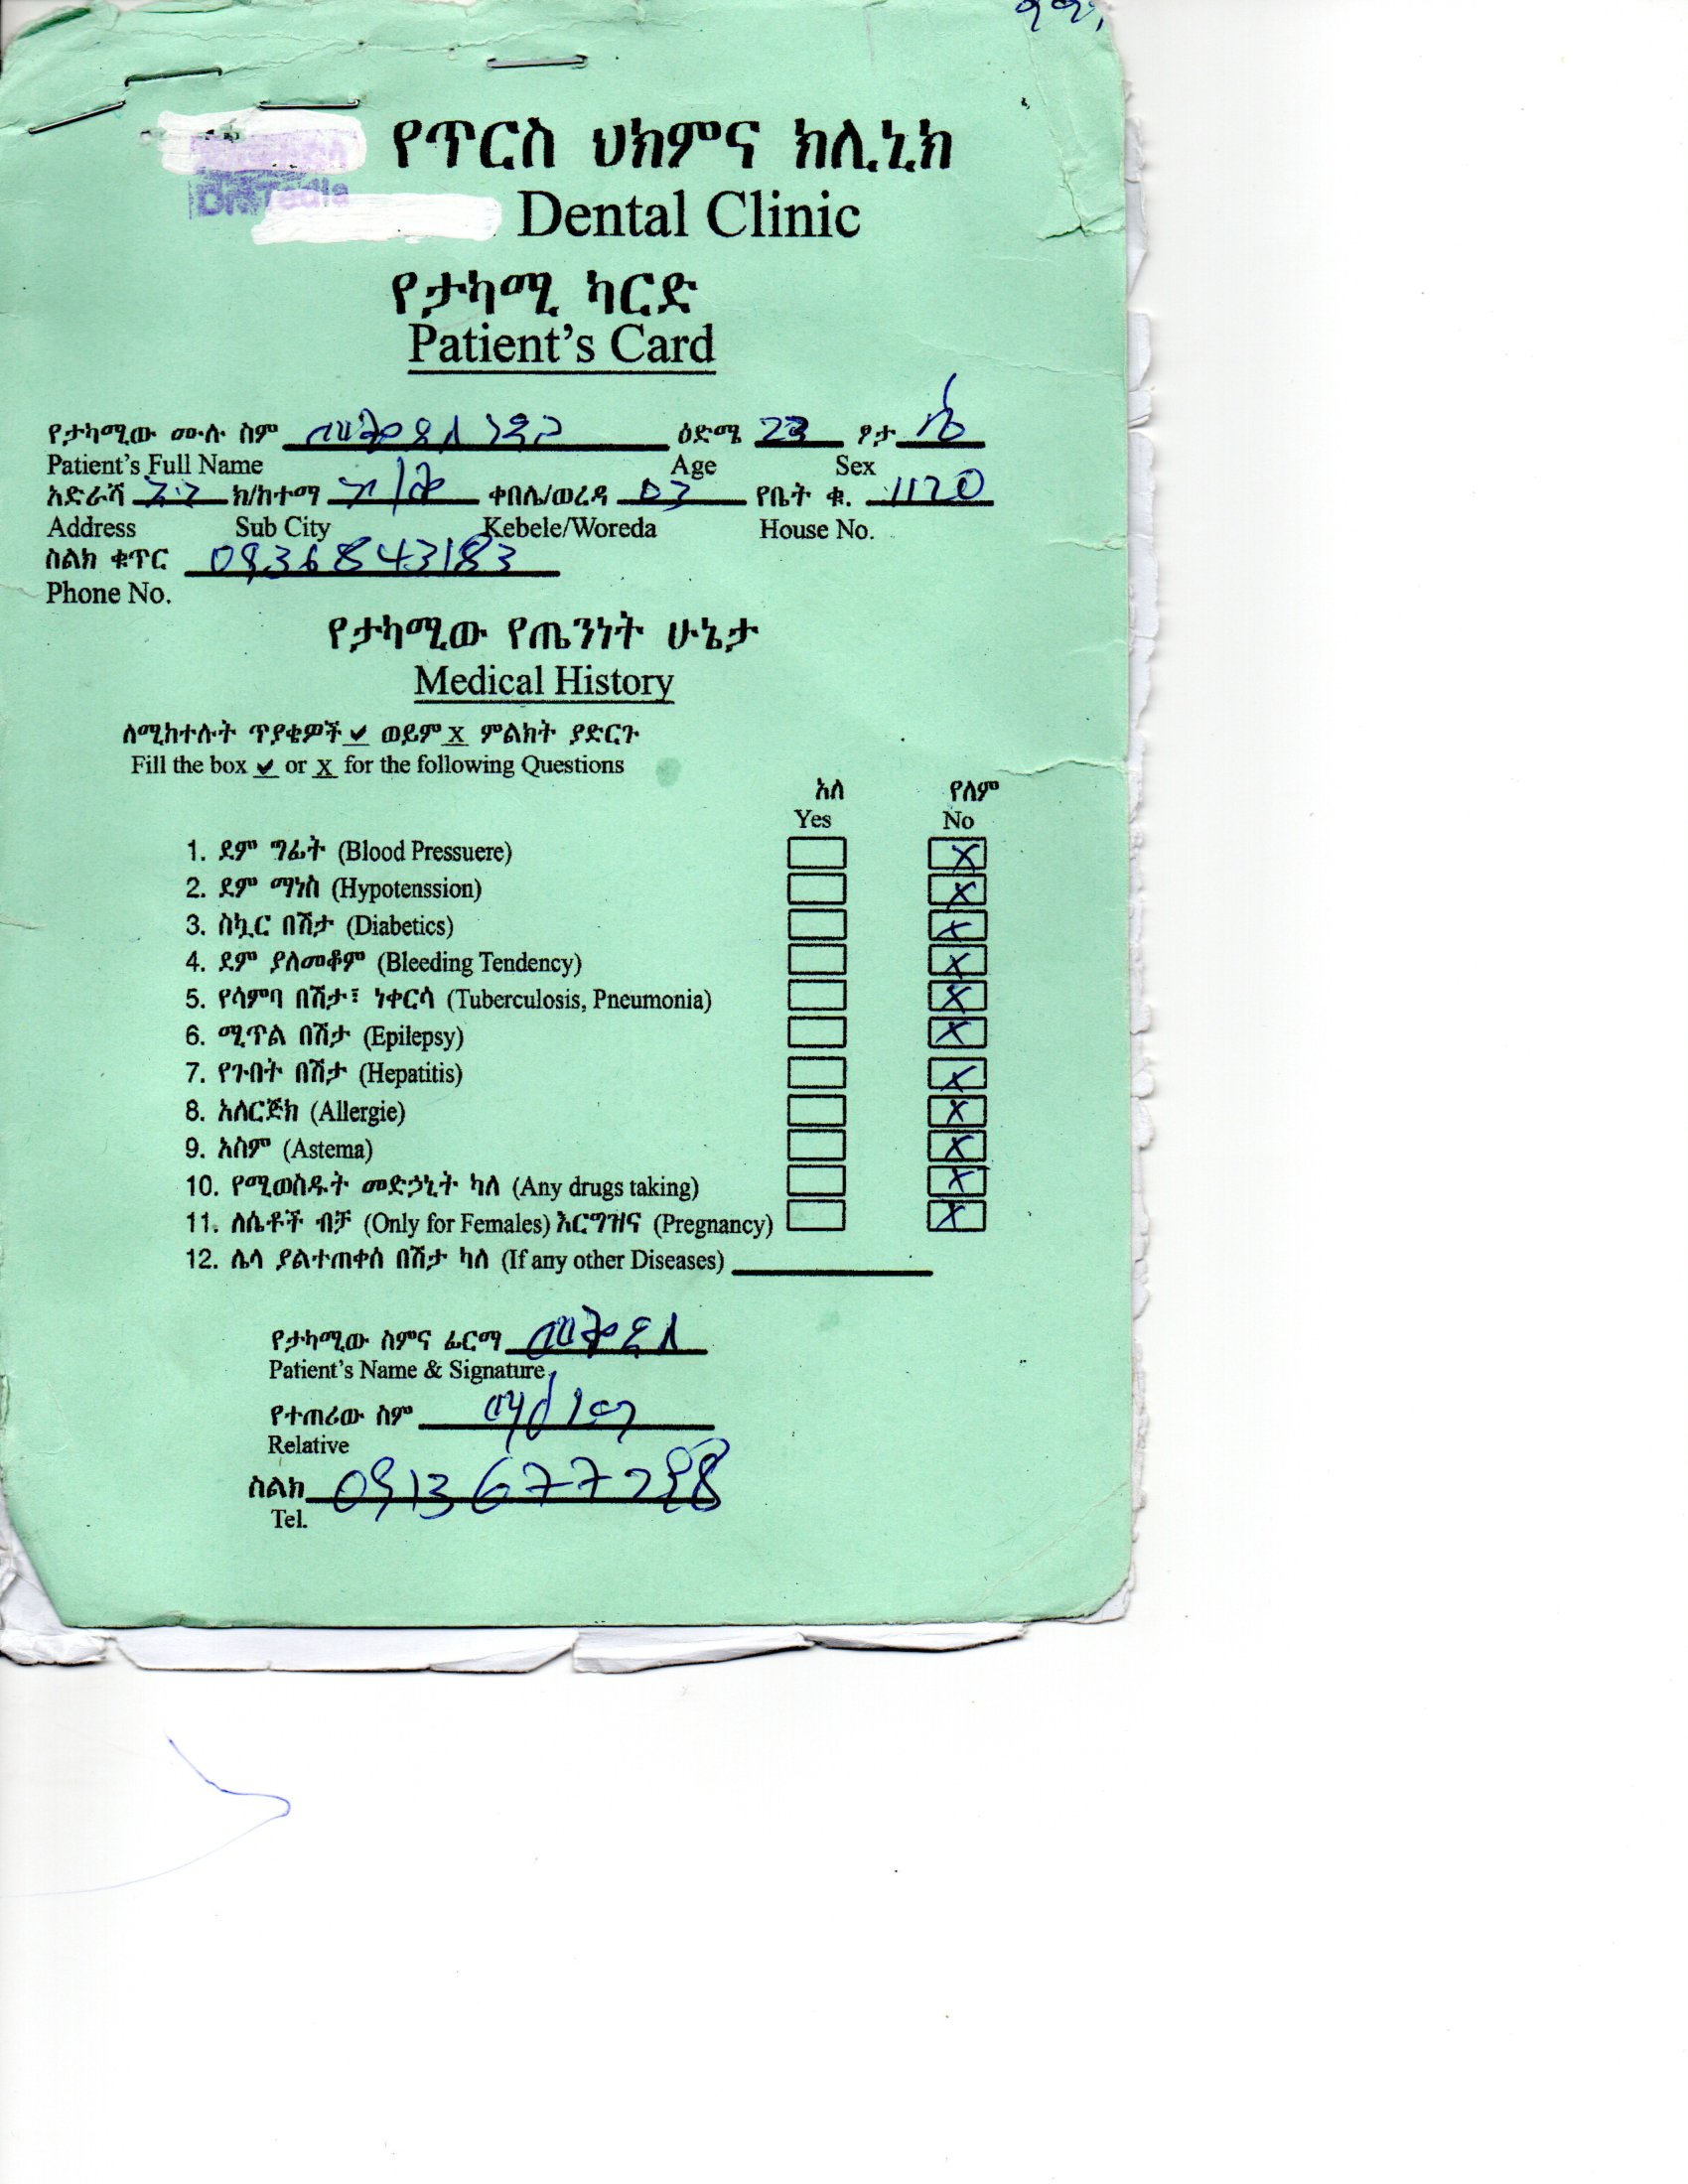 Dr. Tedla
የጥርስ ህክምና ክሊኒክ
Dental Clinic
የታካሚ ካርድ
Patient's Card
የታካሚው ሙሉ ስም ዕድሜ 23 ፆታ ሴ
Patient's Full Name Age Sex
አድራሻ አ.አ ክ/ከተማ ቀበሌ/ወረዳ 03 የቤት ቁ. 1120
Address Sub City Kebele/Woreda House No.
ስልክ ቁጥር 0936843183
Phone No.
የታካሚው የጤንነት ሁኔታ
Medical History
ለሚከተሉት ጥያቄዎች ✔ ወይም x ምልክት ያድርጉ
Fill the box ✔ or X for the following Questions
አለ የለም
Yes No
1. ደም ግፊት (Blood Pressuere) X
2. ደም ማነስ (Hypotenssion) X
3. ስኳር በሽታ (Diabetics) X
4. ደም ያለመቆም (Bleeding Tendency) X
5. የሳምባ በሽታ፣ ነቀርሳ (Tuberculosis, Pneumonia) X
6. ሚጥል በሽታ (Epilepsy) X
7. የጉበት በሽታ (Hepatitis) X
8. አለርጅክ (Allergie) X
9. አስም (Astema) X
10. የሚወስዱት መድኃኒት ካለ (Any drugs taking) X
11. ለሴቶች ብቻ (Only for Females) እርግዝና (Pregnancy) X
12. ሌላ ያልተጠቀሰ በሽታ ካለ (If any other Diseases)
የታካሚው ስምና ፊርማ
Patient's Name & Signature
የተጠሪው ስም
Relative
ስልክ 0913677298
Tel.